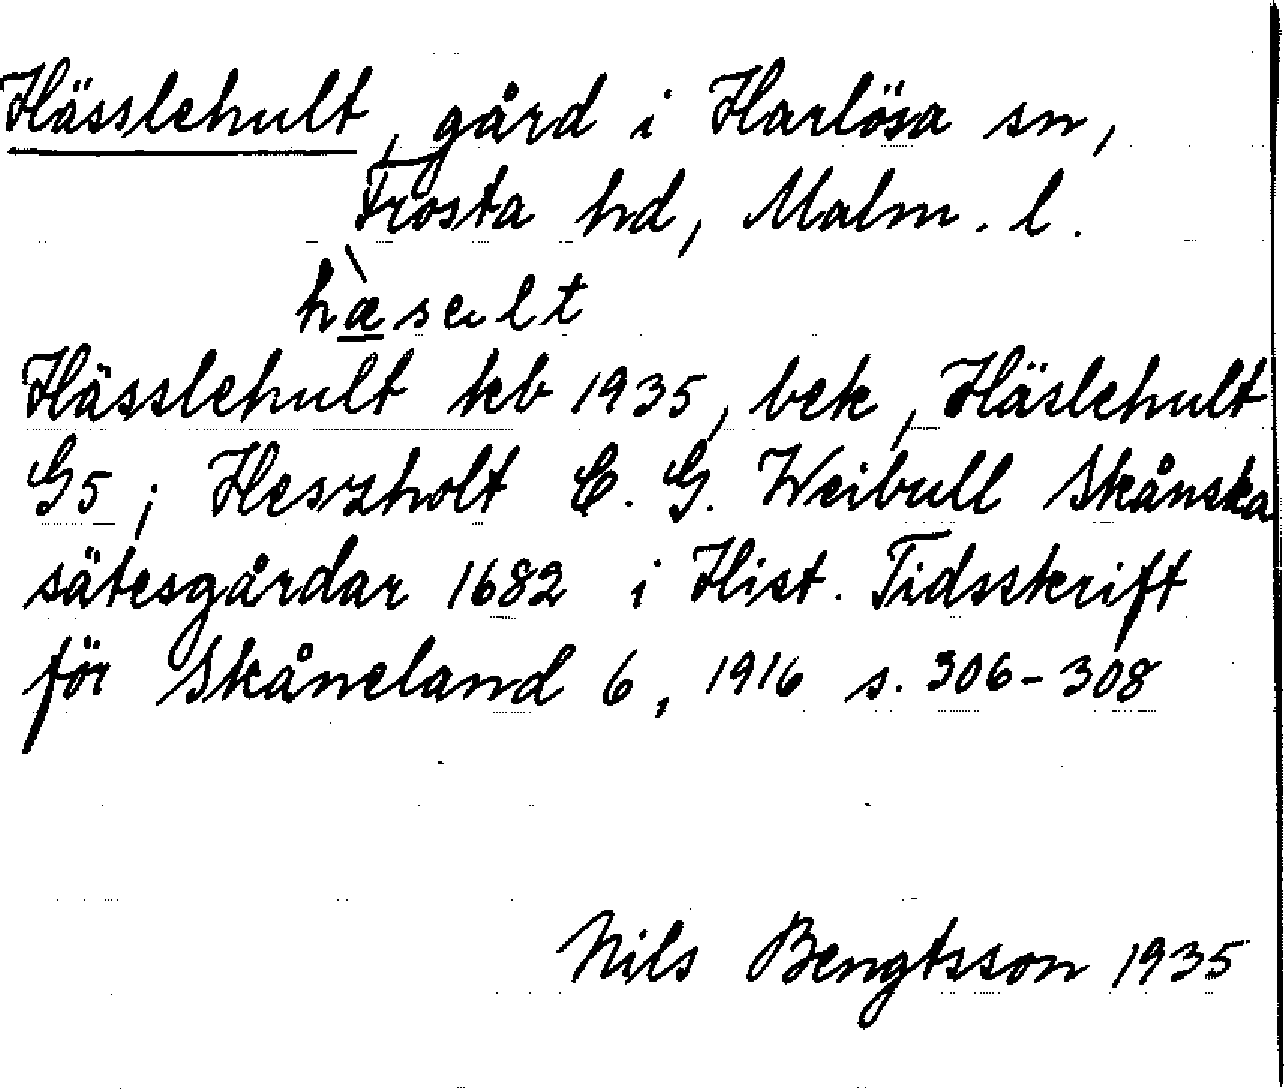 Hässlehult, gård i Harlösa sn,
Frosta hd, Malm. l.
hæ̀selt
Hässlehult kb 1935, bek, Häslehult
G5; Heszholt C. G. Weibull Skånska
sätesgårdar 1682 i Hist. Tidsskrift
för Skåneland 6, 1916 s. 306-308
Nils Bengtsson 1935